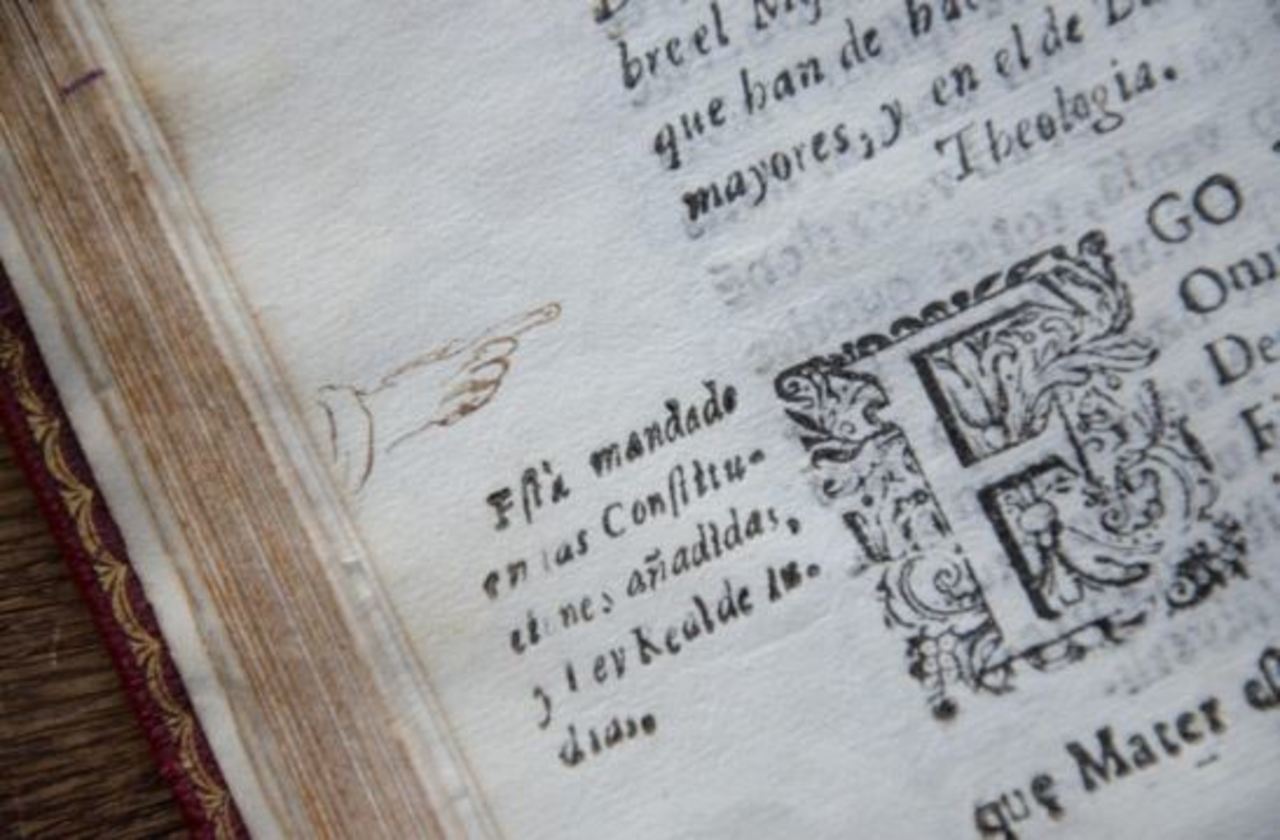 bre el
que han de
mayores, y en el de
Theologia.
EGO
De
Eſtà mandado
en las Conſtitu-
añadidas,
y ley Real de In-
dias.
que Mater